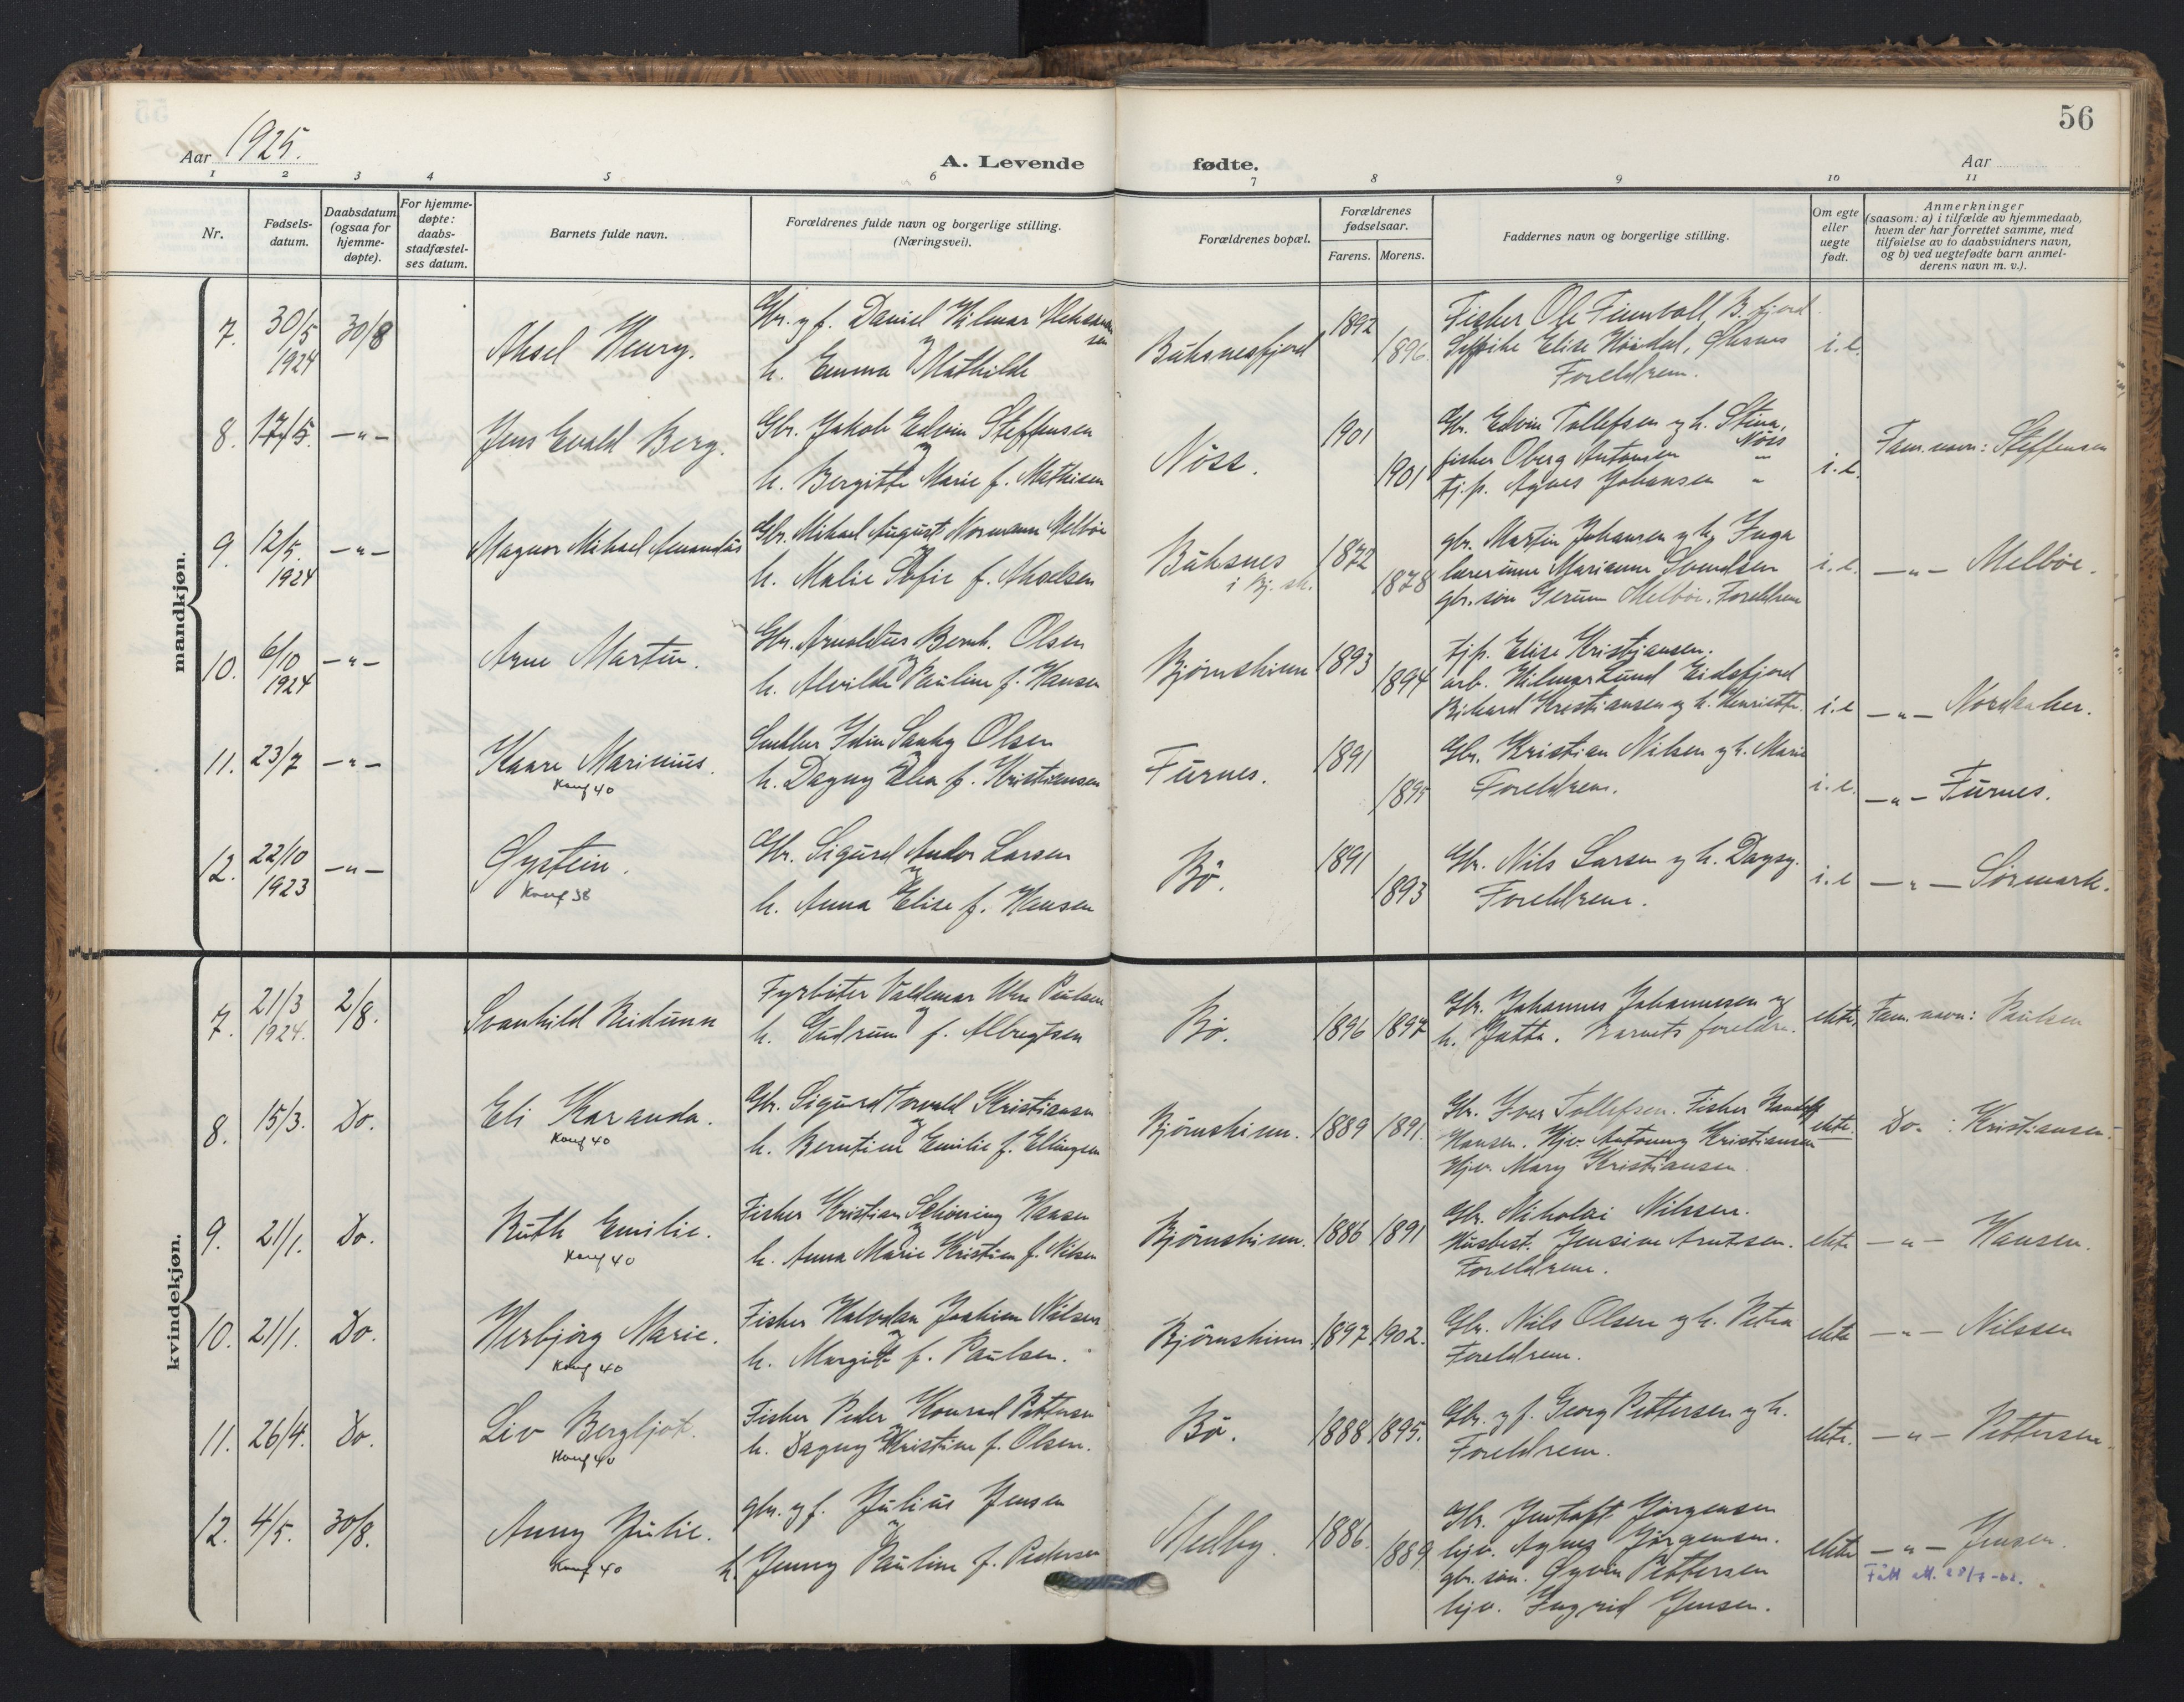 56
Aar 1925.
A. Levende fødte.
Aar
1 2 3 4 5 6 7 8 9 10 11
Nr.
Fødsels-
datum.
Daabsdatum
(ogsaa for
hjemme-
døpte).
For hjemme-
døpte:
daabs-
stadfæstel-
ses datum.
Barnets fulde navn.
Forældrenes fulde navn og borgerlige stilling.
(Næringsvei).
Forældrenes bopæl.
Forældrenes
fødselsaar.
Farens. Morens.
Faddernes navn og borgerlige stilling.
Om egte
eller
uegte
født.
Anmerkninger
(saasom: a) i tilfælde av hjemmedaab,
hvem der har forrettet samme, med
tilføielse av to daabsvidners navn,
og b) ved uegtefødte barn anmel-
derens navn m. v.).
mandkjøn.
7. 30/5 1924 30/8
Aksel Henry.
Gbr. og f. Daniel Hilmar
h. Emma Mathilde
Buksnesfjord
1892 1896.
Fisker Ole B. fjord.
Elise
Foreldrene.
i. e.
8. 17/5. —"—
Jens Evald Berg.
Gbr. Jakob Edvin Steffensen
og
h. Bergitte Marie f. Mathisen
Nöss.
1901 1901
Gbr. Edvin Tollefsen og h. Stina, Nöss
fisker Oberg Antonsen "
tj.p. Agnes Johansen "
i. e.
Fam. navn: Steffensen
9. 12/5. 1924 —"—
Magnor Mikael Amandus
Gbr. Mikael August Normann Melböe
h. Malie Sofie f. Akselsen
Buksnes
i Bj. sk.
1872 1878
gbr. Martin Johansen og h. Inga
lærerinne Marianne Svendsen
gbr. søn Melböe. Foreldrene
i. e.
—"— Melböe.
10. 6/10 1924 —"—
Arne Martin.
Gbr. Arnoldus Bernh. Olsen
h. Alvilde Pauline f. Hansen
Björnskinn
1893 1894
tj.p. Elise Kristiansen.
arb. Hilmar Lund Eidsfjord
Rikard Kristiansen og h. Henriette.
i. e
—"— Nordaaker.
11. 23/7 —"—
Kaare Marinius.
Konf 40
Olsen
h. Dagny Elea f. Kristiansen
Furnes.
1891 1895
Gbr. Kristian Nilsen og h. Marie
Foreldrene.
i. e.
—"— Furnes.
12. 22/10 1923 —"—
Øystein.
Konf 38
Gbr. Sigurd Andor Larsen
og
h. Anna Elise f. Hansen
Bö.
1891 1893
Gbr. Nils Larsen og h. Dagny.
Foreldrene.
i. e
—"— Sörmark.
kvindekjøn.
7. 21/3 1924. 2/8.
Svanhild Reidunn
Fyrböter Valdemar Paulsen
og
h. Gudrun f. Albregtsen
Bö.
1896 1897
Gbr. Johannes Johannessen og
h. Jutta. Barnets foreldre.
ekte.
Fam. navn: Paulsen
8. 15/3. Do.
Eli Karanda.
Konf 40
Gbr. Sigurd Torvald Kristiansen
og
h. Berntine Emilie f. Ellingsen
Björnskinn.
1889 1891.
Gbr. Iver Tollefsen. Fisker
Hansen. Hjev. Kristiansen
Hjev. Mary Kristiansen.
ekte.
Do. : Kristiansen.
9. 21/1. Do.
Ruth Emilie.
Konf 40
Fisker Kristian Schöning Hansen
og
h. Anna Marie Kristine f. Nilsen
Björnskinn.
1886 1891
Gbr. Nikolai Nilssen.
Husbest. Jensine Arntsen.
Foreldrene.
ekte
—"— Hansen.
10. 21/1. Do.
Herbjörg Marie.
Konf 40
Fisker Halvdan Joakim Nilsen
og
h. Margit f. Paulsen.
Björnskinn
1897 1902.
Gbr. Nils Olsen og h. Petra
Foreldrene.
ekte
—"— Nilssen
11. 26/4. Do.
Liv Bergljot.
Konf 40
Fisker Peder Konrad Pettersen
og
h. Dagny Kristine f. Olsen.
Bö.
1888 1895.
Gbr. og f. Georg Pettersen og h.
Foreldrene.
ekte.
—"— Pettersen.
12. 4/5. 30/8.
Anny Julie.
Konf 40
gbr. og f. Julius Jensen
og
h. Jenny Pauline f. Pedersen
Medby.
1886. 1889
Gbr. Jörgensen
hjv. Agnes Jörgensen.
gbr. søn. Øyvin Pettersen
hjv. Ingrid Jensen.
ekte
—"— Jensen.